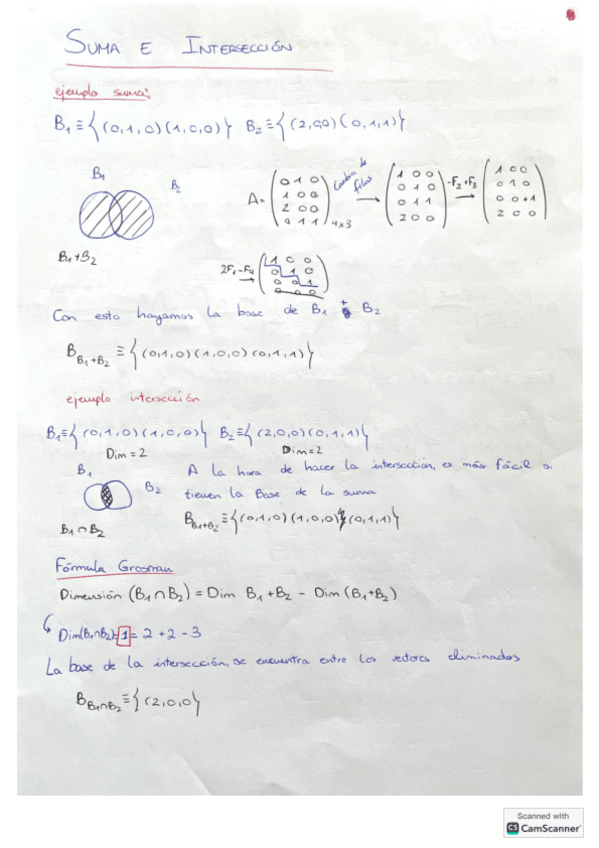 SUMA E INTERSECCIÓN
ejemplo suma:
B₁ ≡ {(0,1,0)(1,0,0)} B₂ ≡ {(2,0,0)(0,1,1)}
B₁ B₂
B₁+B₂
A = (0 1 0
1 0 0
2 0 0
0 1 1) 4x3
Cambio de filas →
(1 0 0
0 1 0
0 1 1
2 0 0)
-F₂+F₃ →
(1 0 0
0 1 0
0 0 1
2 0 0)
2F₁-F₄ →
(1 0 0
0 1 0
0 0 1
0 0 0)
Con esto hayamos la base de B₁ + B₂
B B₁+B₂ ≡ {(0,1,0)(1,0,0)(0,1,1)}
ejemplo intersección
B₁≡{(0,1,0)(1,0,0)} B₂≡{(2,0,0)(0,1,1)}
Dim = 2 Dim = 2
B₁ B₂
B₁∩B₂
A la hora de hacer la intersección, es más fácil si
tienen la Base de la suma
B B₁+B₂ ≡ {(0,1,0)(1,0,0)(0,1,1)}
Fórmula Grosman
Dimensión (B₁∩B₂) = Dim B₁+B₂ - Dim (B₁+B₂)
Dim(B₁∩B₂)=1= 2+2-3
La base de la intersección, se encuentra entre los vectores eliminados
B B₁∩B₂ ≡ {(2,0,0)}
Scanned with
CS CamScanner